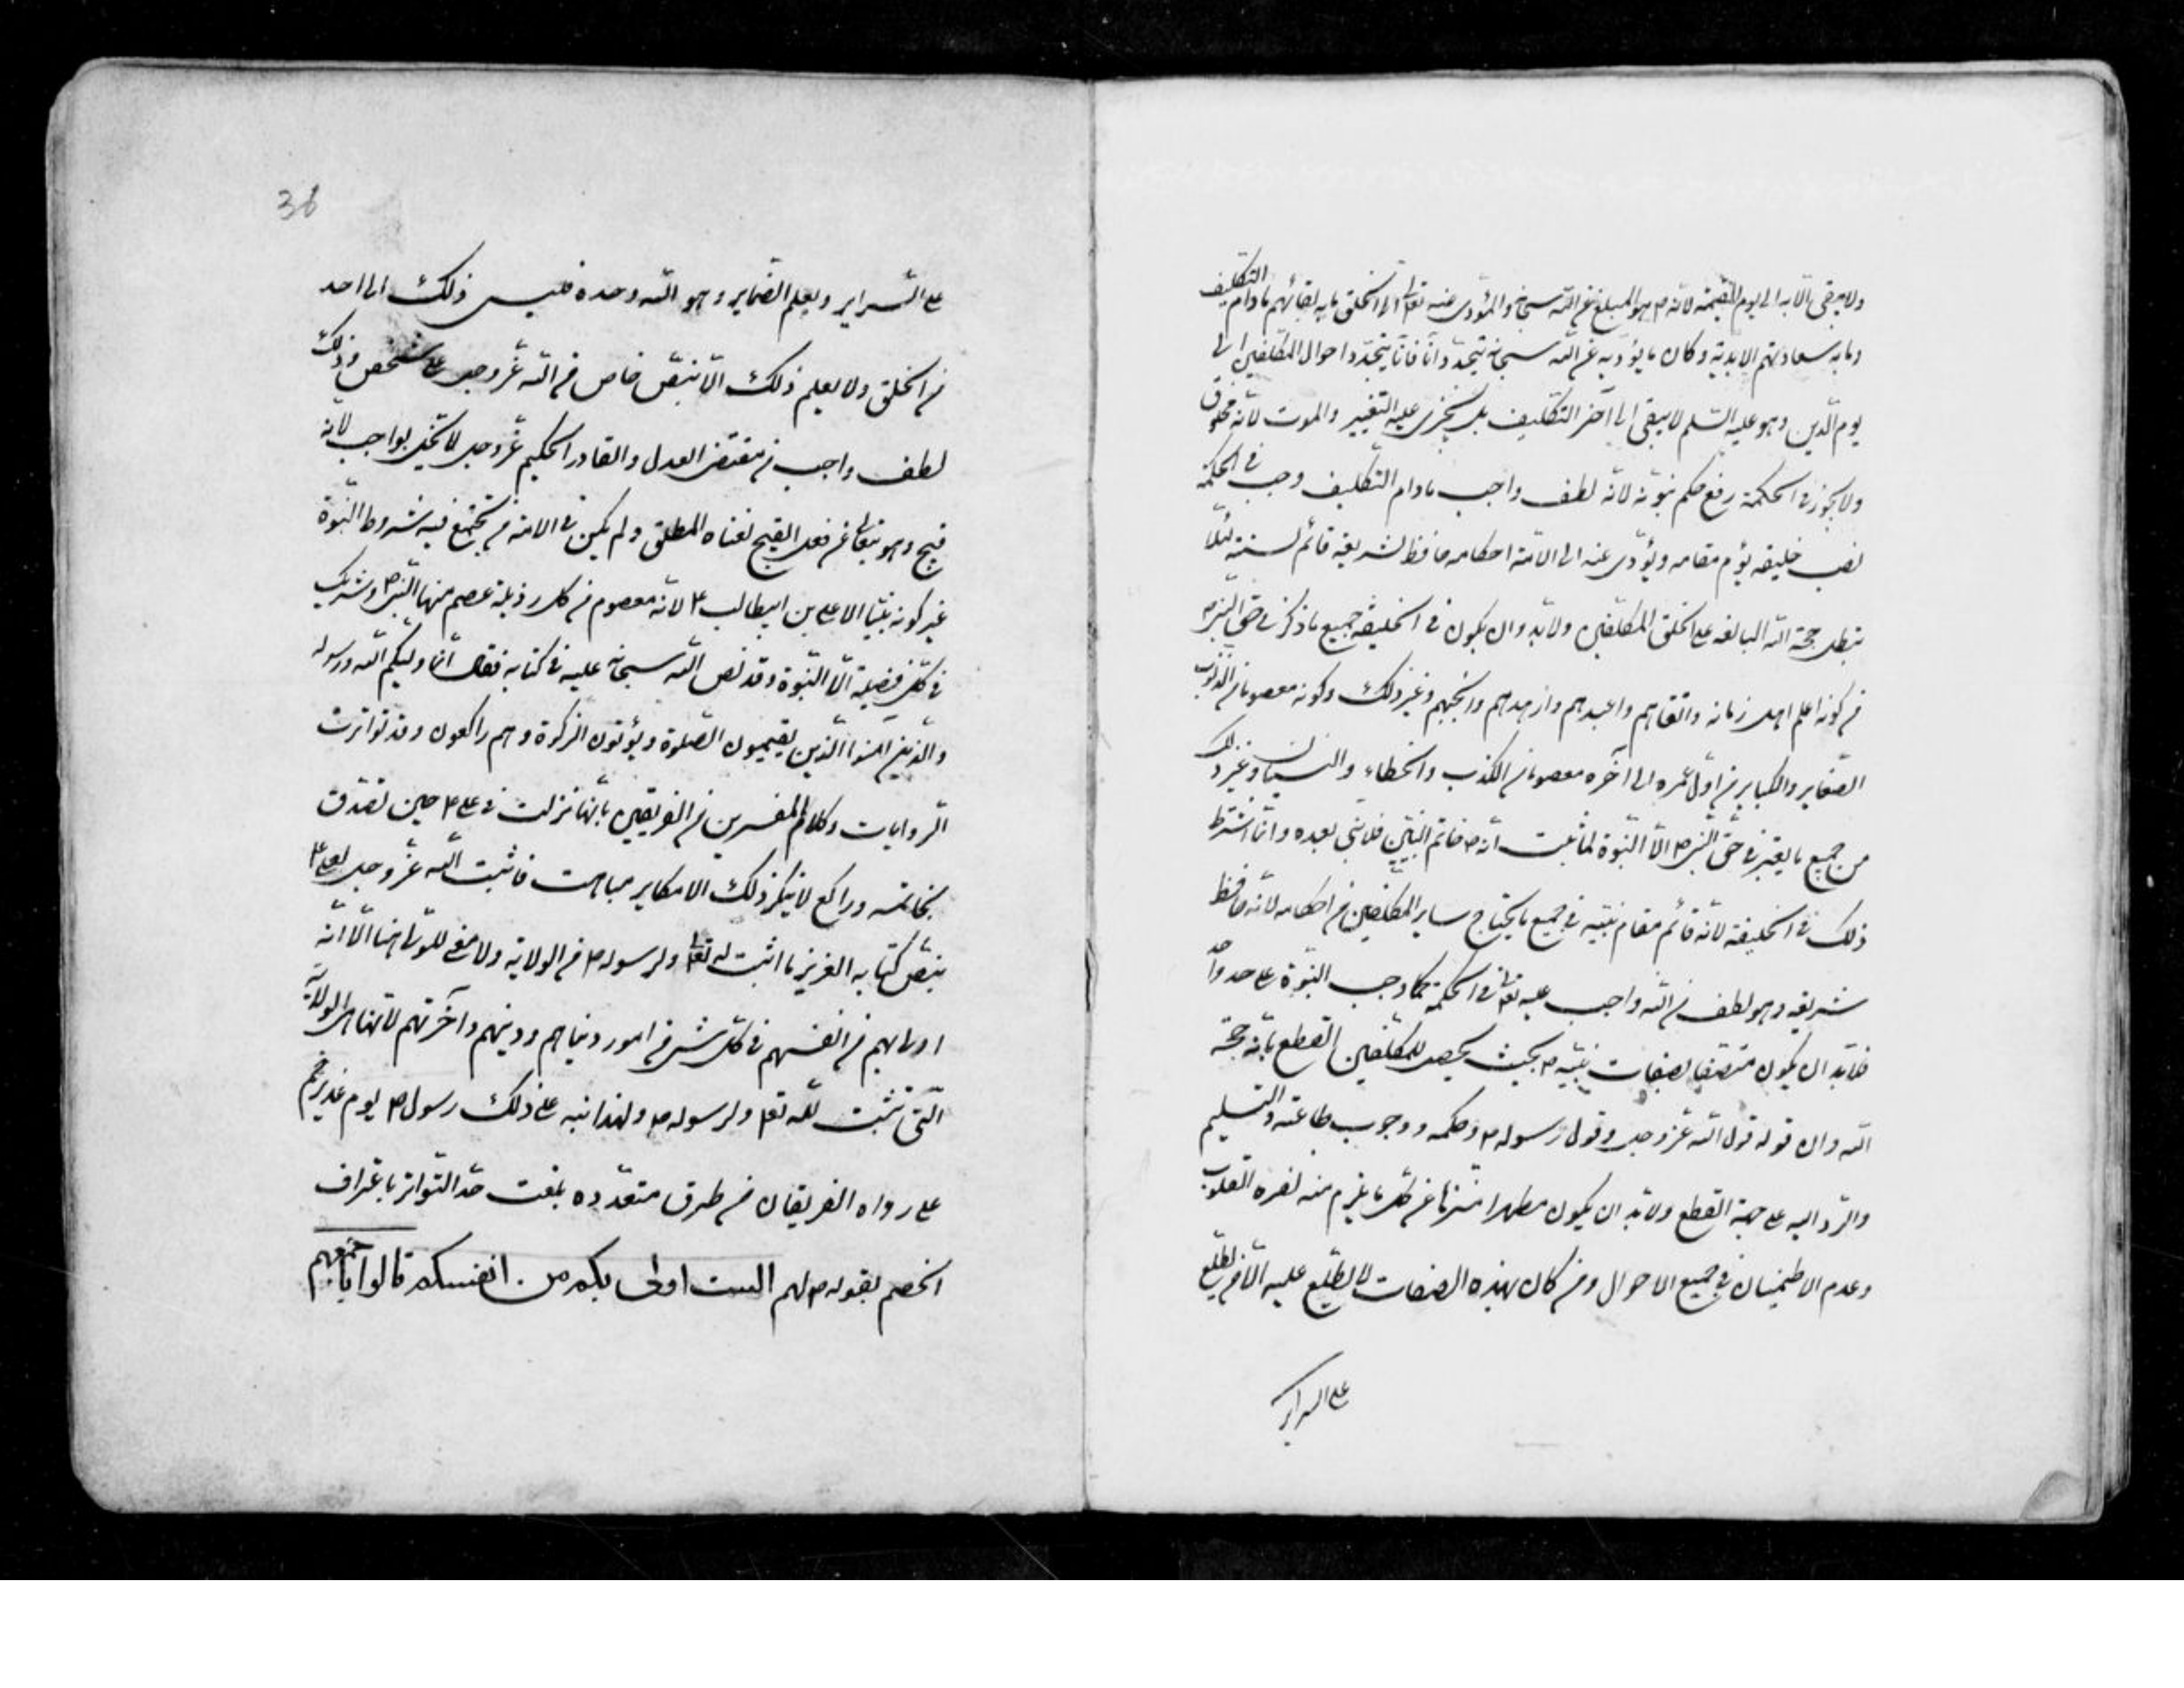 ولا يبقى الا به الى يوم القيمة لانه ص هو المبلغ من الله سبحانه والمؤدى عنه تعالى الى الخلق ما به بقائهم مادام التكليف
وما به سعادتهم الابدية وكان ما يؤديه عن الله سبحانه يتجدد آنا فآنا يتجدد احوال المكلفين الى
يوم الدين وهو عليه السلم لا يبقى الى آخر التكليف بل يجرى عليه التغيير والموت لانه مخلوق
ولا يجوز فى الحكمة رفع حكم نبوته لانه لطف واجب مادام التكليف وجب فى الحكمة
نصب خليفه يقوم مقامه ويؤدى عنه الى الامة احكامه حافظ لشريعته قائم لسنته لئلا
تبطل حجة الله البالغه على الخلق المكلفين ولابد وان يكون فى الخليفة جميع ما ذكر فى حق النبى ص
من كونه اعلم اهل زمانه واتقاهم واعبدهم وازهدهم وانجبهم وغير ذلك وكونه معصوما من الذنوب
الصغاير والكباير من اول عمره الى آخره معصوما من الكذب والخطاء والنسيان وغير ذلك
من جميع ما يعتبر فى حق النبى ص الا النبوة لما ثبت انه ص خاتم النبيين فلا نبى بعده وانما اشترط
ذلك فى الخليفة لانه قائم مقام نبيه فى جميع ما يحتاج ساير المكلفين من احكامه لانه حافظ
شريعته وهو لطف من الله واجب عليه تعالى فى الحكمة كما وجب النبوة على حد واحد
فلابد ان يكون متصفا بصفات نبيه ص بحيث يحصل للمكلفين القطع بانه حجة
الله وان قوله قول الله عز وجل وقول رسوله ص وحكمه ووجوب طاعته والتسليم
والرد اليه على جهة القطع ولابد ان يكون مطهرا منزها عن كل ما يلزم منه نفره القلوب
وعدم الاطمينان فى جميع الاحوال ومن كان بهذه الصفات لا يطلع عليه الا من يطلع
على السراير
38
على السراير ويعلم الضماير وهو الله وحده فليس ذلك الى احد
من الخلق ولا يعلم ذلك الا بنص خاص من الله عز وجل على شخص وذلك
لطف واجب من مقتضى العدل والقادر الحكيم عز وجل لا يخل بواجب لانه
قبيح وهو تعالى عن فعل القبيح لغناه المطلق ولم يكن فى الامة من يجتمع فيه شروط النبوة
غير كونه نبيا الا على بن ابيطالب ع لانه معصوم من كل رذيلة عصم منها النبى ص وشريك
فى كل فضيلة الا النبوة وقد نص الله سبحانه عليه فى كتابه فقال انما وليكم الله ورسوله
والذين امنوا الذين يقيمون الصلوة ويؤتون الزكوة وهم راكعون وقد تواترت
الروايات وكلام المفسرين من الفريقين بانها نزلت فى على ع حين تصدق
بخاتمه وراكع لا ينكر ذلك الا مكابر مباهت فاثبت الله عز وجل لعلى ع
بنص كتابه العزيز ما اثبت له تعالى ولرسوله ص من الولاية ولا معنى للولى هنا الا انه
اولى بهم من انفسهم فى كل شىء من امور دنياهم ودينهم وآخرتهم لانها هى الولاية
التى تثبت لله تعالى ولرسوله ص ولهذا نبه على ذلك رسول ص يوم غدير خم
على رواه الفريقان من طرق متعدده بلغت حد التواتر باعتراف
الخصم بقوله ص لهم الست اولى بكم من انفسكم قالوا باجمعهم